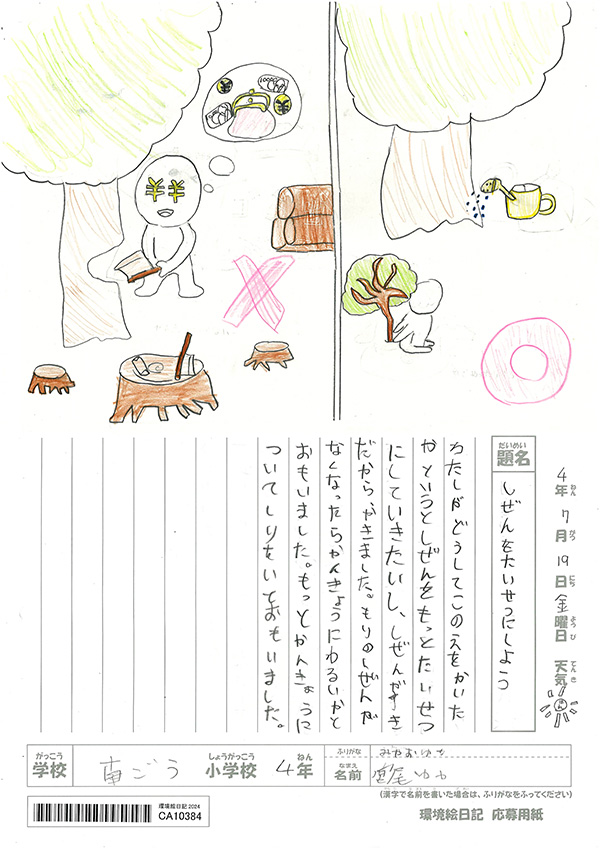 ¥ ¥
¥ ¥
4年 7月 19日 金曜日 天気
ねん がつ にち ようび てんき
だいめい
題名
しぜんをたいせつにしよう
わたしがどうしてこのえをかいた
かというとしぜんをもっとたいせつ
にしていきたいし、しぜんがすき
だから、かきました。もりのしぜんが
なくなったらかんきょうにわるいかと
おもいました。もっとかんきょうに
ついてしりたいとおもいました。
がっこう しょうがっこう ねん ふりがな
学校 東ごう 小学校 4年 なまえ 名前 宮尾
(漢字で名前を書いた場合は、ふりがなをふってください)
環境絵日記 2024
CA10384
環境絵日記 応募用紙